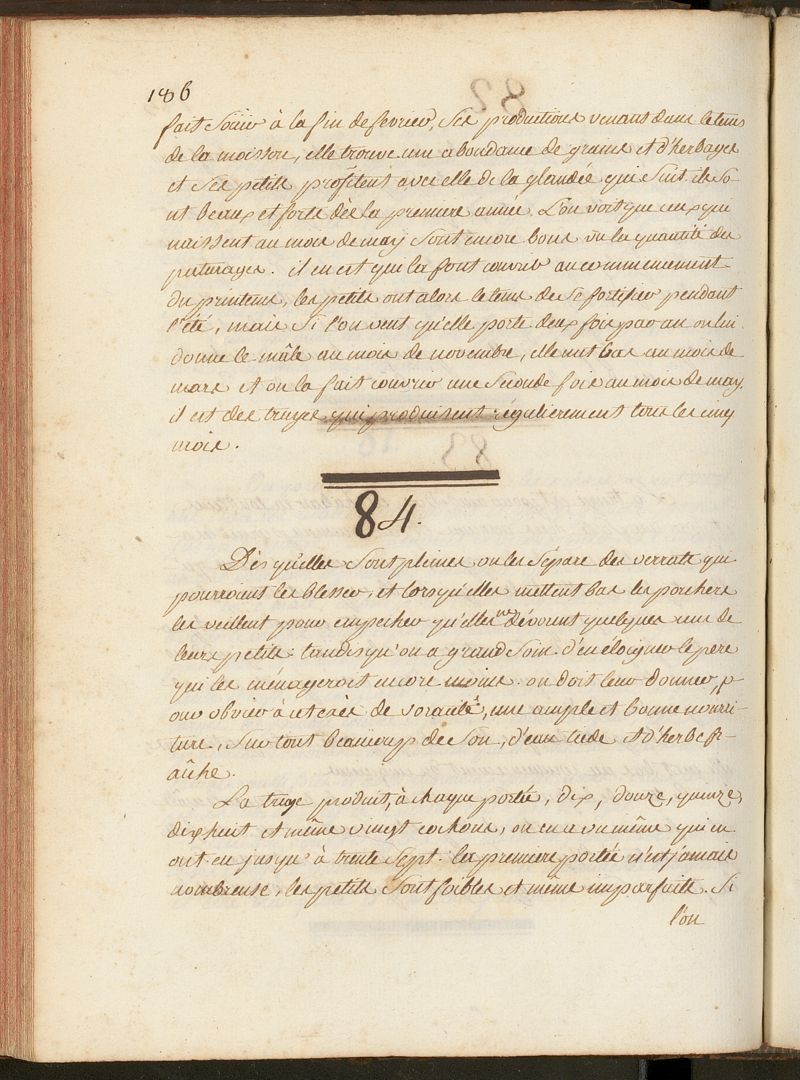 186
fait Souir à la fin de fevrier, Ses productions venant dans le tems
de la moisson, elle trouve une abondance de grains et d'herbages
et Ses petits profitent avec elle de la glandée qui Suit ils So-
nt beaux et forts dès la premiere année. L'on voit que ceux qui
naissent au mois de may Sont encore bons vu la quantité des
paturages. il en est qui les font couvrir au commencement
du printems, les petits ont alors le tems de Se fortifier pendant
l'été, mais Si l'on veut qu'elle porte deux fois par an on lui
donne le mâle au mois de novembre, elle met bas au mois de
mars et on la fait couvrir une Seconde fois au mois de may.
il est des truyes qui produisent régulierement tous les cinq
mois.
84.
Dès qu'elles Sont pleines on les Sépare des verrats qui
pourroient les blesser, et lorsqu'elles mettent bas les porchers
les veillent pour empecher qu'elles ne dévorent quelques uns de
leurs petits: tandis qu'on a grand Soin d'en éloigner le pere
qui les ménageroit encore moins. on doit leur donner, p-
our obvier à cet excès de voracité, une ample et bonne nourri-
ture, Sur tout beaucoup de Son, d'eau tiede et d'herbe fr-
aîche.
La truye produit, à chaque portée, dix, douze, quinze,
dixhuit et même vingt cochons, on en a vu même qui en
ont eu jusqu'à trente Sept. les premiere portée n'est jamais
nombreuse, les petits Sont foibles et même imparfaits. Si
l'on